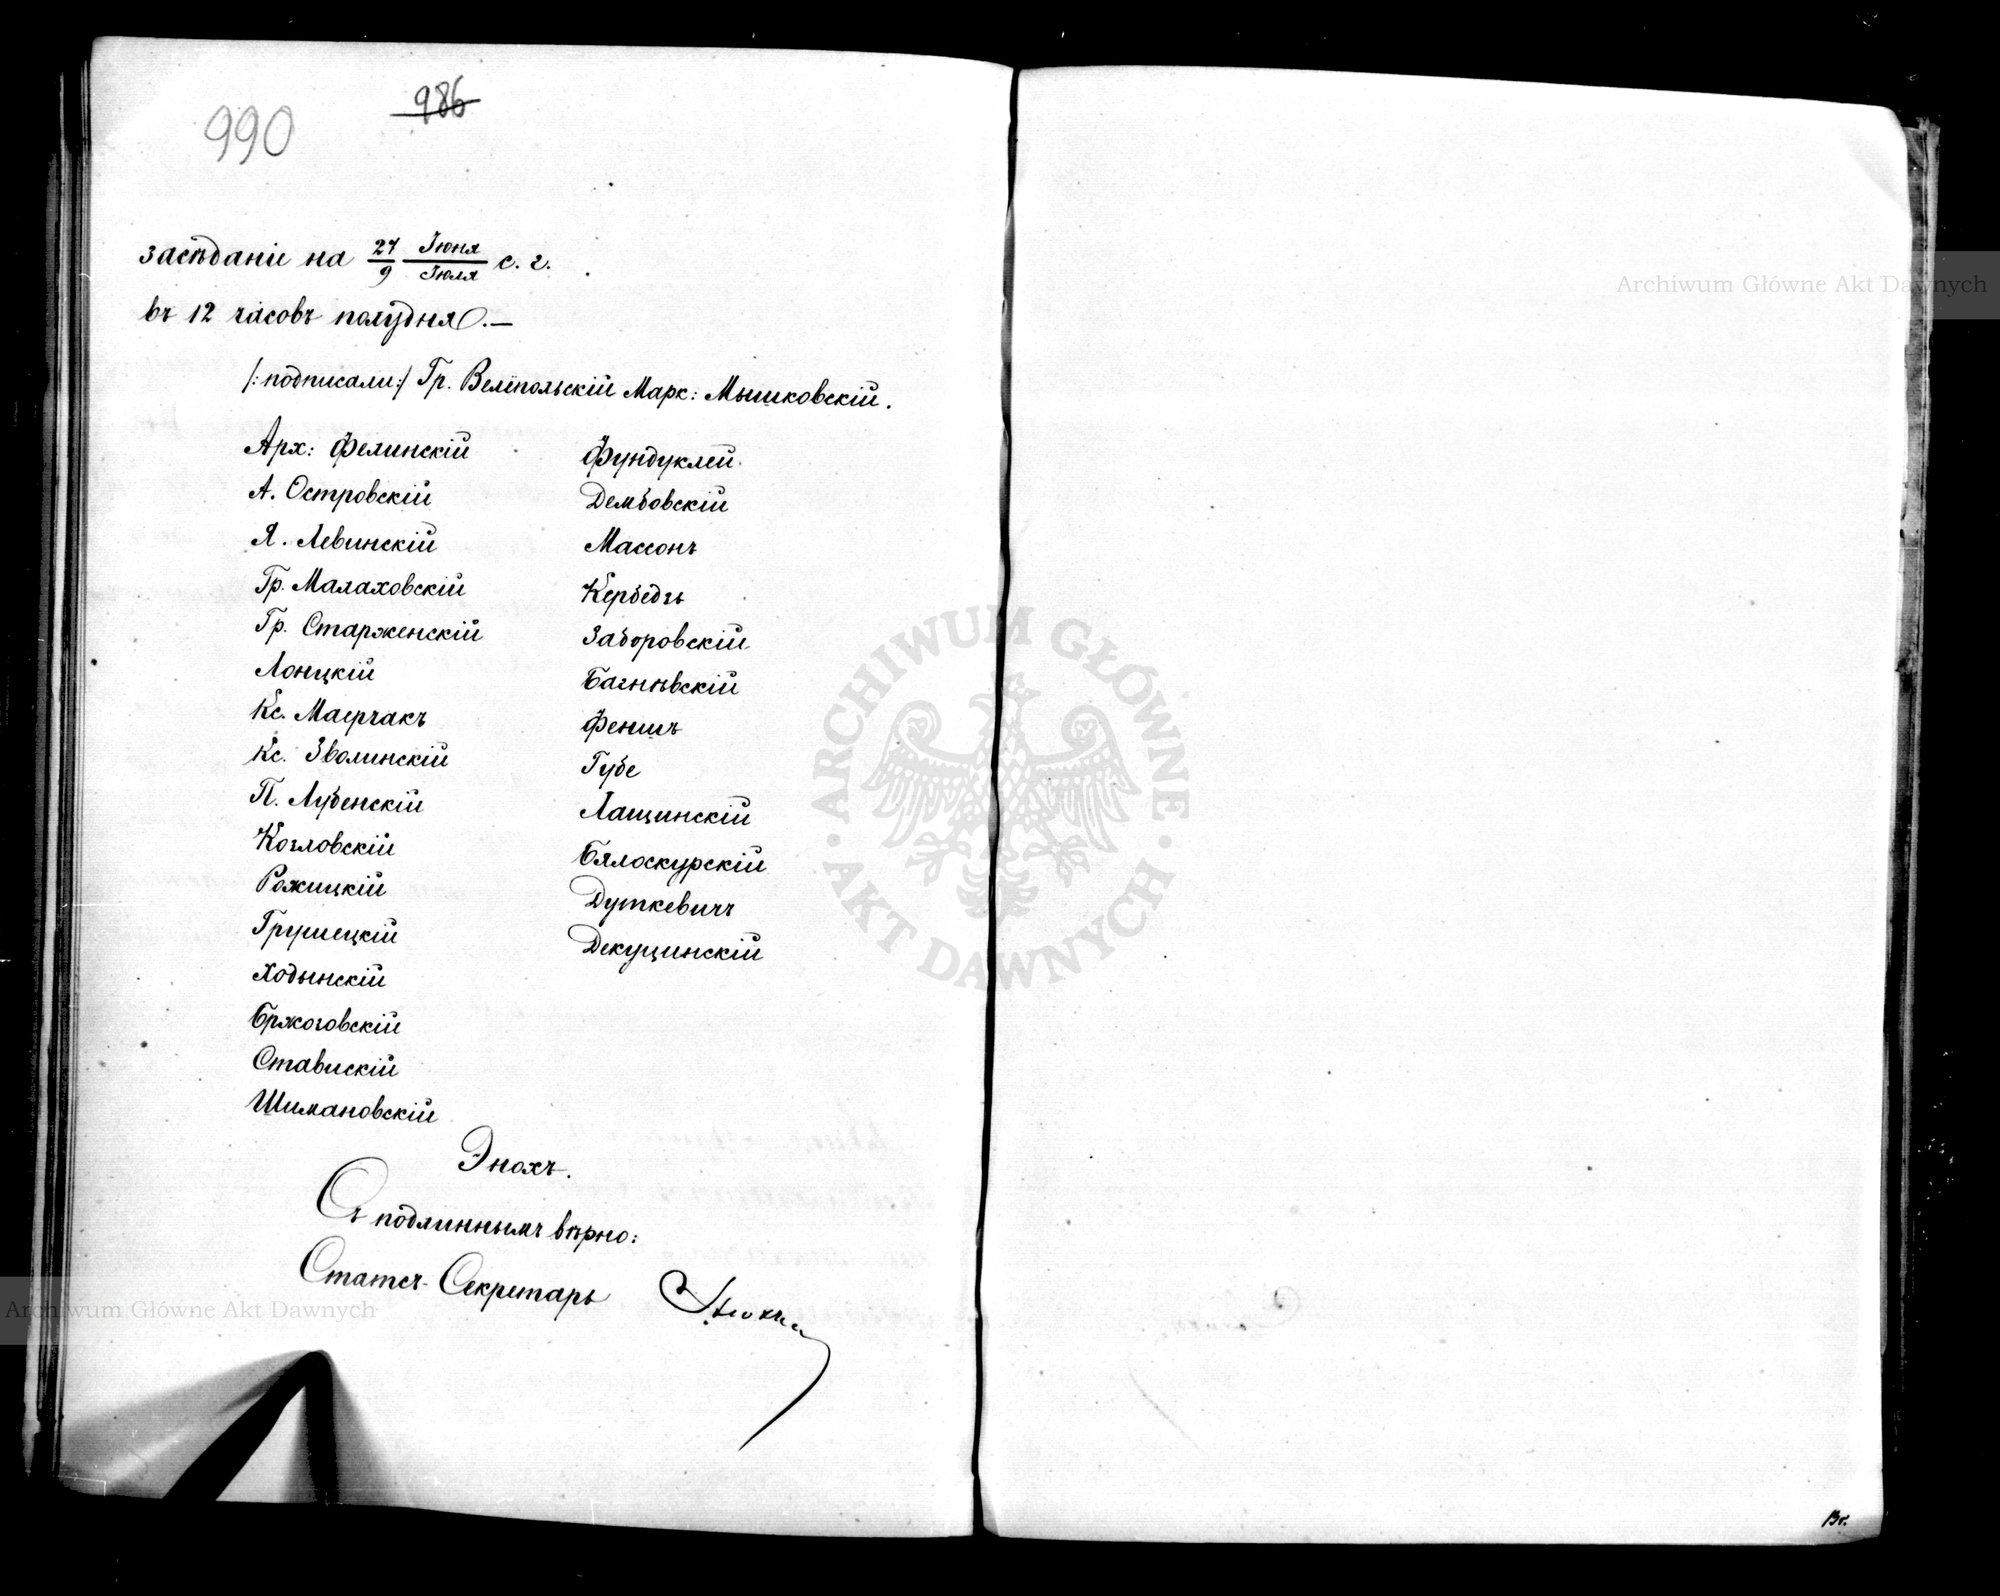 990
986
засѣданіе на 27/9 Іюня/Іюля с. г.
въ 12 часовъ полудня.—
/:подписали:/ Гр. Велiопольскій Марк: Мышковскій.
Арх: Фелинскій
А. Островскій
Я. Левинскій
Гр. Малаховскій
Гр. Старженскій
Лонцкій
Кс. Маерчакъ
Кс. Зволинскій
П. Лубенскій
Козловскій
Рожицкій
Грушецкій
Ходынскій
Бржозовскій
Ставискій
Шимановскій
Фундуклей
Дембовскій
Массонъ
Кербедзь
Заборовскій
Багнѣвскій
Феншъ
Губе
Лащинскій
Бялоскурскій
Дуткевичъ
Декуцинскій
Энохъ.
Съ подлиннымъ вѣрно:
Статсъ-Секретарь
Archiwum Główne Akt Dawnych
Archiwum Główne Akt Dawnych
· ARCHIWUM GŁÓWNE · AKT DAWNYCH